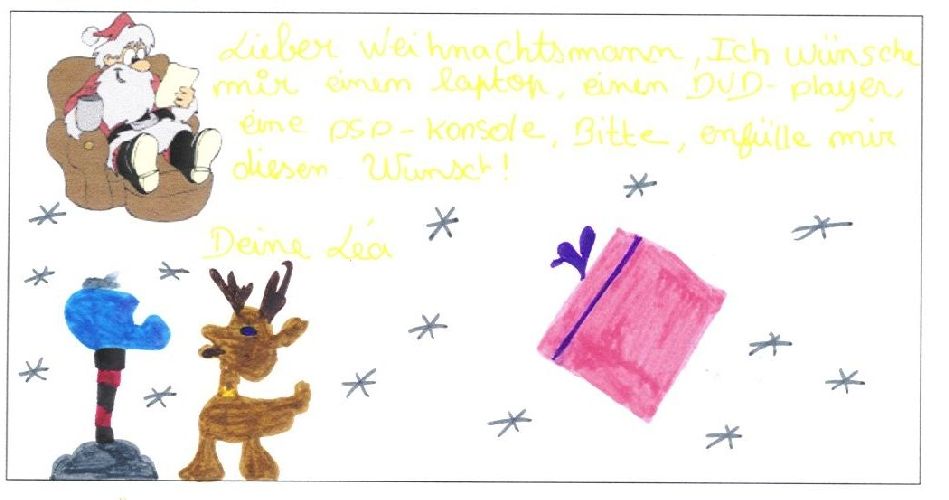 Lieber Weihnachtsmann, Ich wünsche
mir einem laptop, einen DVD-player,
eine PSP-Konsole, Bitte, erfülle mir
diesen Wunsch!
Deine Léa